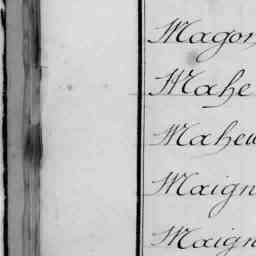 Magon
Mahe
Maheu
Maign
Maign